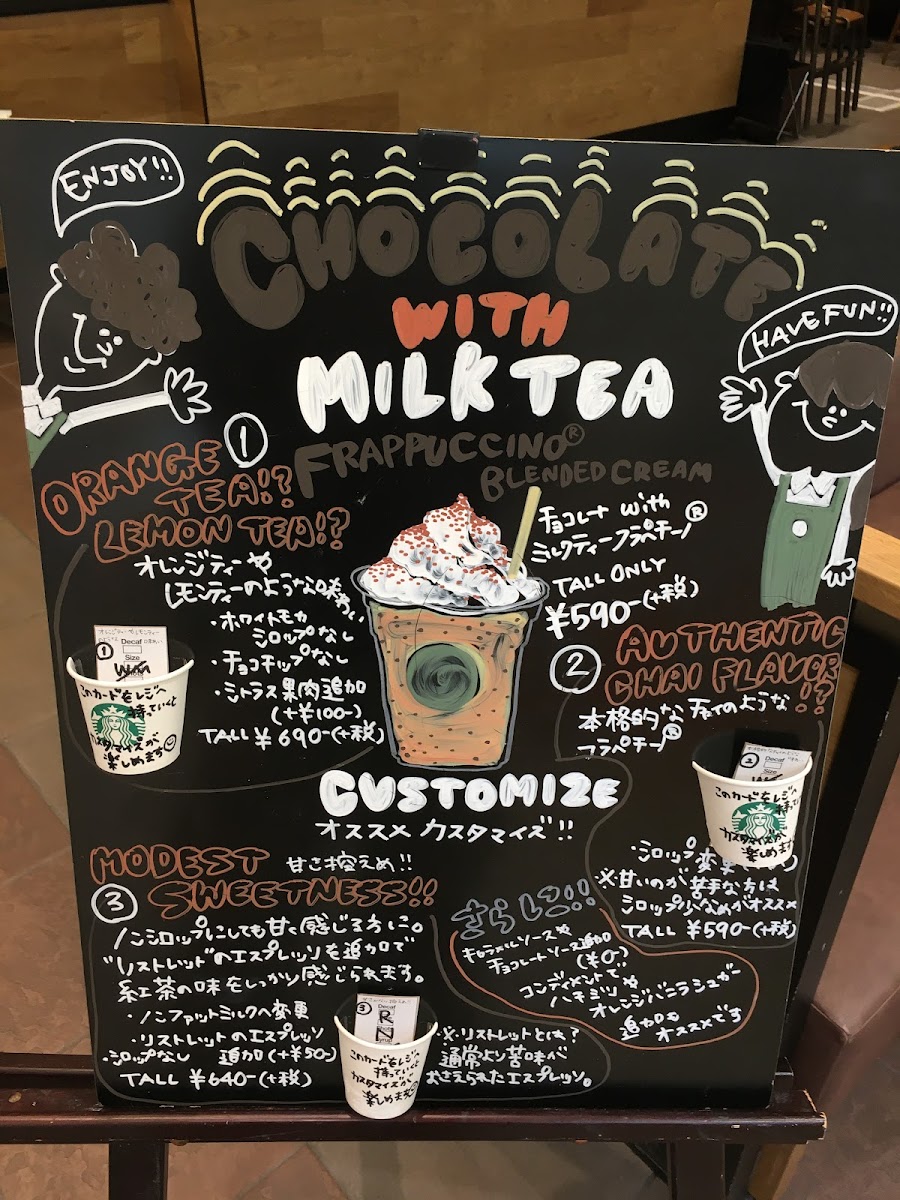 ENJOY!!
CHOCOLATE
WITH
MILK TEA
HAVE FUN!!
FRAPPUCCINO®
BLENDED CREAM
チョコレート with
ミルクティーフラペチーノ®
TALL ONLY
¥590-(+税)
①
ORANGE
TEA!?
LEMON TEA!?
オレンジティーや
レモンティーのような味わい
・ホワイトモカ
シロップなし
・チョコチップなし
・シトラス果肉追加
(+¥100-)
TALL ¥690-(+税)
①
Decaf
Size
このカードをレジへ
持っていくと
カスタマイズが
楽しめます
②
AUTHENTIC
CHAI FLAVOR
!?
本格的なチャイのような
フラペチーノ®
②
Decaf
Size
このカードをレジへ
カスタマイズが
楽しめます
・シロップ変更
※甘いのが苦手な方は
シロップ少なめがオススメ
TALL ¥590-(+税)
CUSTOMIZE
オススメ カスタマイズ!!
MODEST
甘さ控えめ!!
SWEETNESS!!
③
ノンシロップにしても甘く感じる方に。
"リストレット"のエスプレッソを追加で
紅茶の味をしっかり感じられます。
・ノンファットミルクへ変更
・リストレットのエスプレッソ
追加(+¥50-)
・シロップなし
TALL ¥640-(+税)
③
Decaf
R
N
このカードをレジへ
持っていくと
カスタマイズが
楽しめます
※・リストレットとは?
通常より苦味が
おさえられたエスプレッソ。
さらに!!
キャラメルソースや
チョコレートソース追加
(¥0-)
コンディメントで
ハチミツや
オレンジバニラシュガー
追加も
オススメです